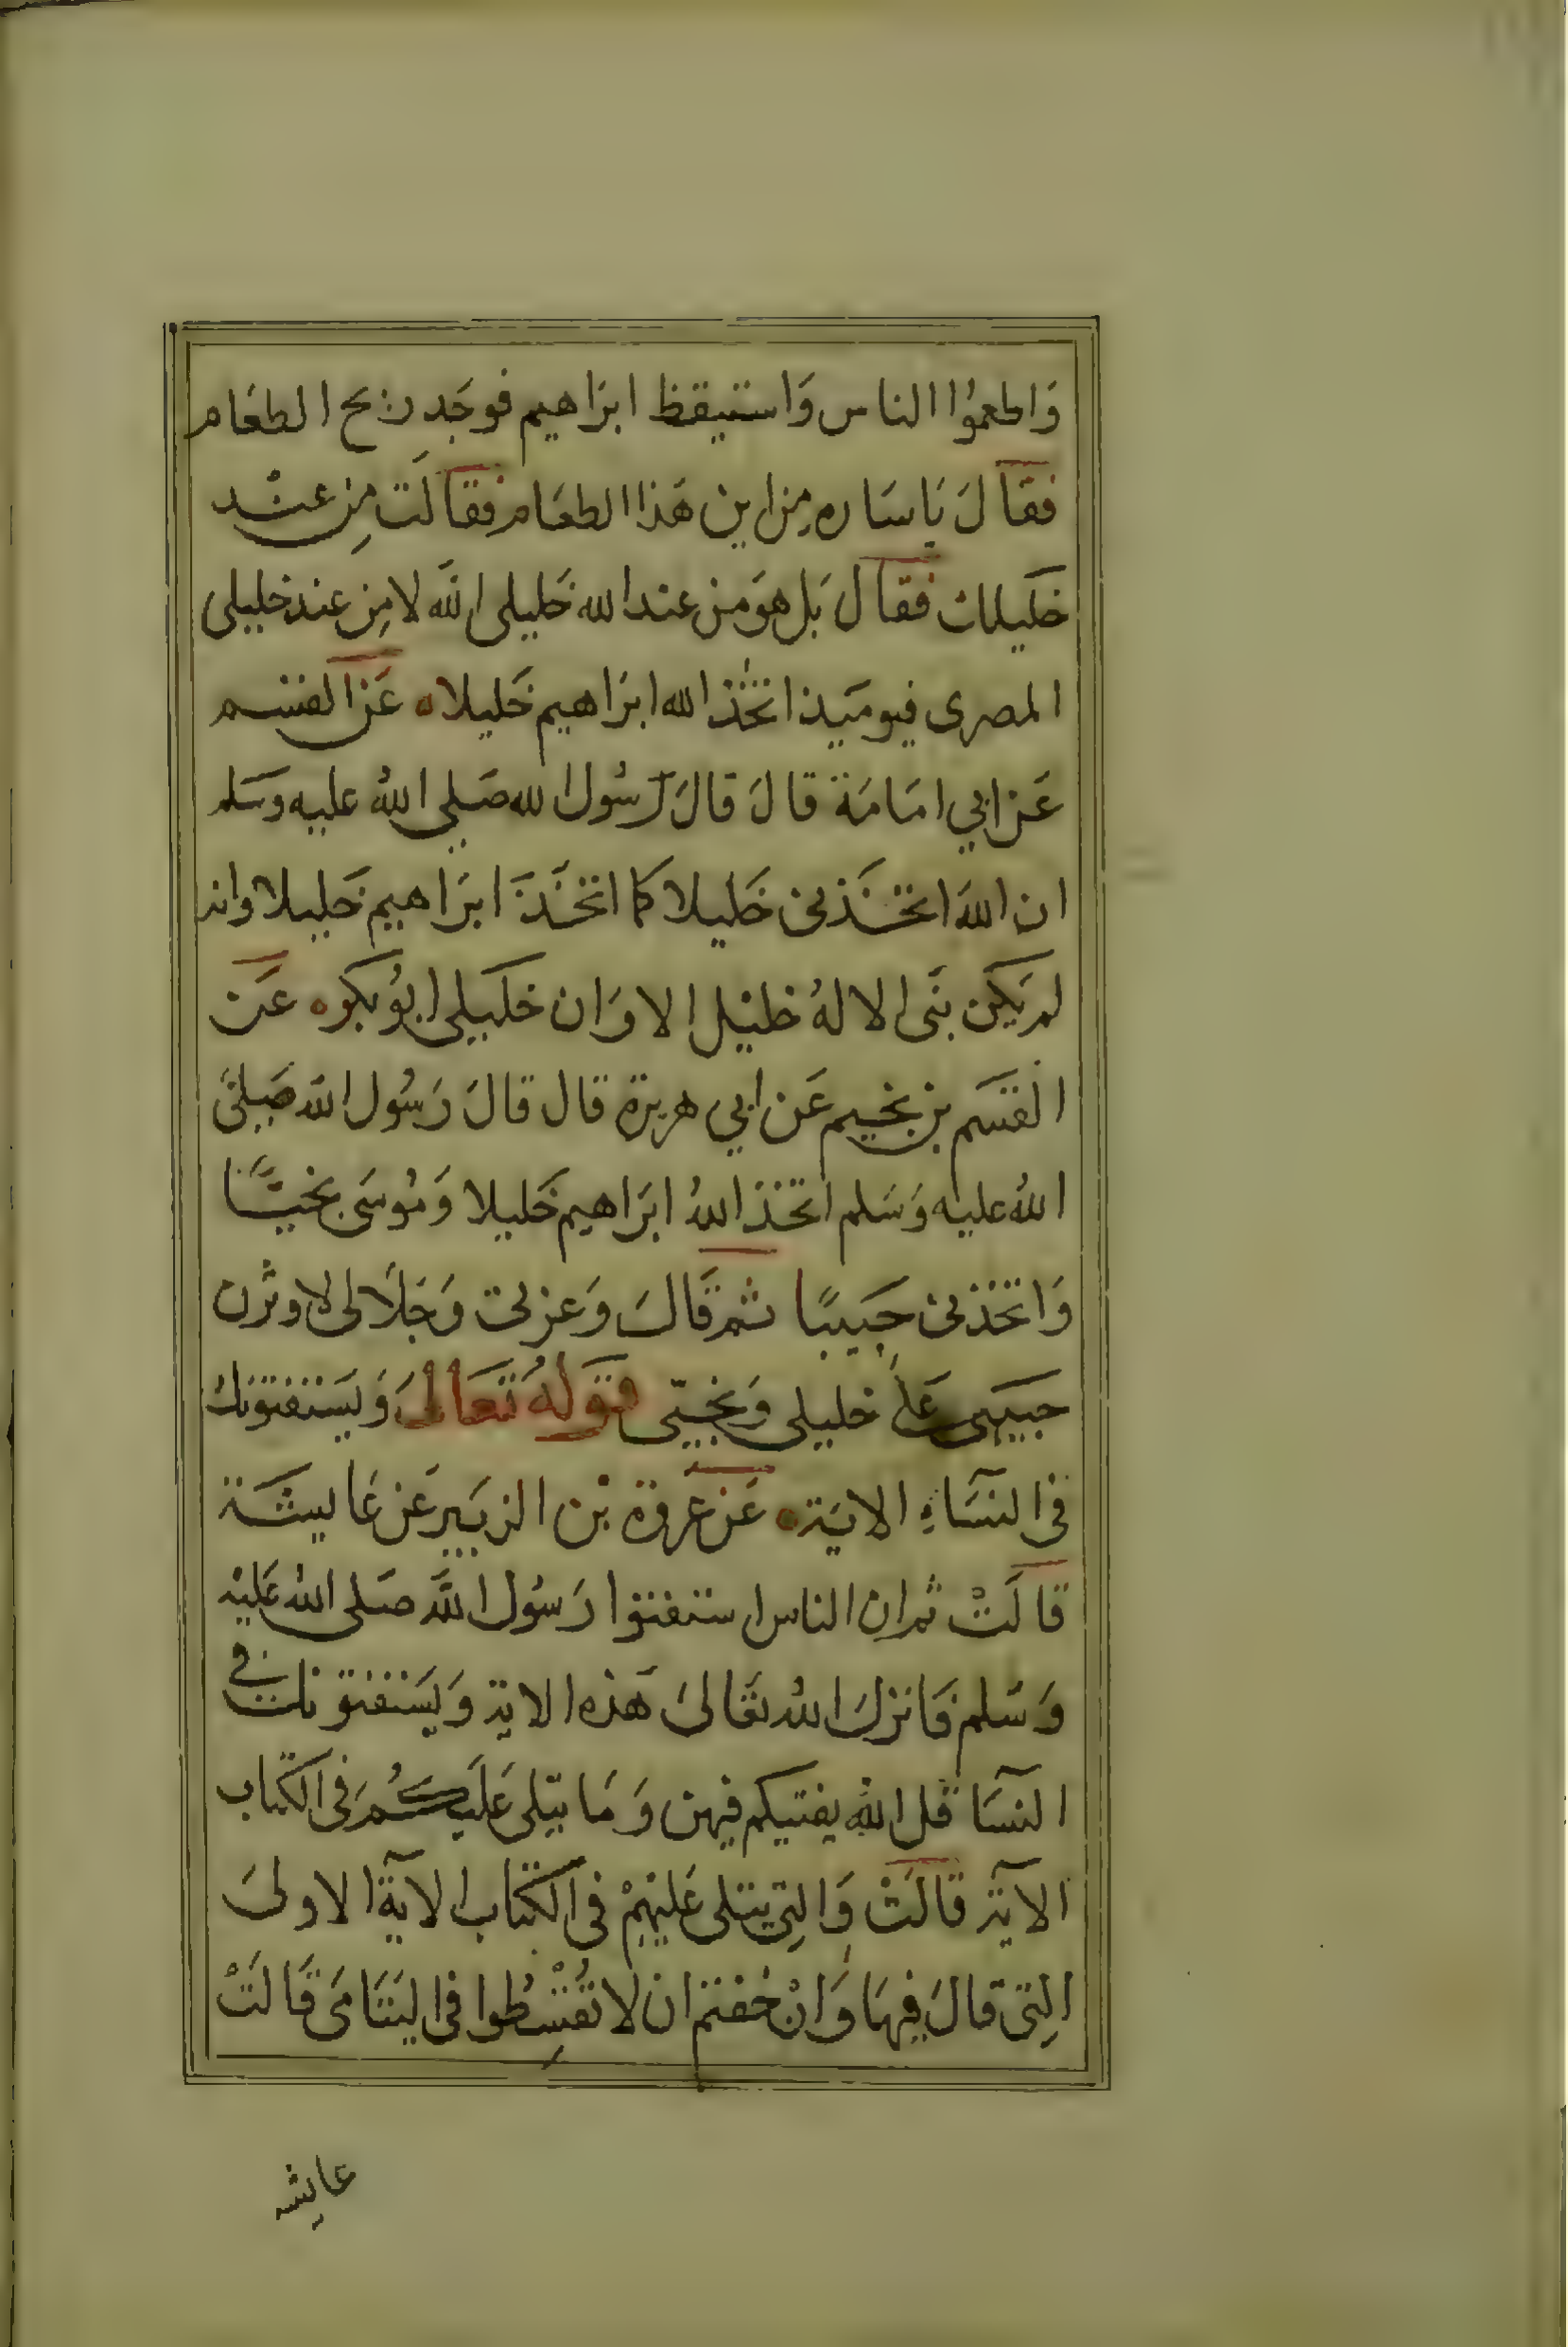 وَاطعمُوا الناس وَاستيقظ ابرَاهيم فوجَد ريح الطعَام
فقَالَ يَا سَاره مِن اين هَذا الطعَام فقَالَت مِن عند
خَليلك فقَال بَل هوَ من عند الله خَليلى الله لا مِن عند خليلى
المصرى فيوميَذ اتخَذ الله ابرَاهيم خَليلاه عَن القسم
عَن ابي امَامَة قالَ قالَ رَسُول الله صَلى اللهُ عليه وسَلم
ان اللهَ اتخَذنى خَليلا كما اتخَذَ ابرَاهيم خَليلا وانه
لم يَكن نبَى الا لهُ خليْل الا وَان خليَلى ابوُ بكره عَن
القسَم بن نجيم عَن ابي هريرة قال قالَ رَسُول الله صَلىَّ
اللهُ عليه وَسَلم اتخذ اللهُ ابرَاهيم خَليلا وَمُوسَى نجيًّا
وَاتخذنى حَبيبًا ثم قَالَ وَعزتى وَجَلَالى لاوثرن
حبيَبى عَلى خليلى وَنجيّى قَولهُ تعَالىَ وَيَستفتونك
فى النسَآءِ الايَةه عَن عُروَة بْن الزبَير عَن عَاييشَة
قَالَتْ ثم ان الناس استفتوا رَسُول اللَّه صَلى الله عَليْه
وَسَلم فَانزلَ اللهُ تعَالىَ هَذه الاية وَيَستفتونك فى
النسَآ قل اللهُ يفتيكم فيهن وَمَا يتلى عَليَكُمَ فى الكتاب
الآية قالَتْ وَالتِى يتلى عَليْهِمْ فى الكتاب الآيةُ الاولىَ
التِى قالَ فِيهَا وَانْ خفتم ان لا تُقْسِطُوا فى اليَتَامىَ قَالَتْ
عايشه